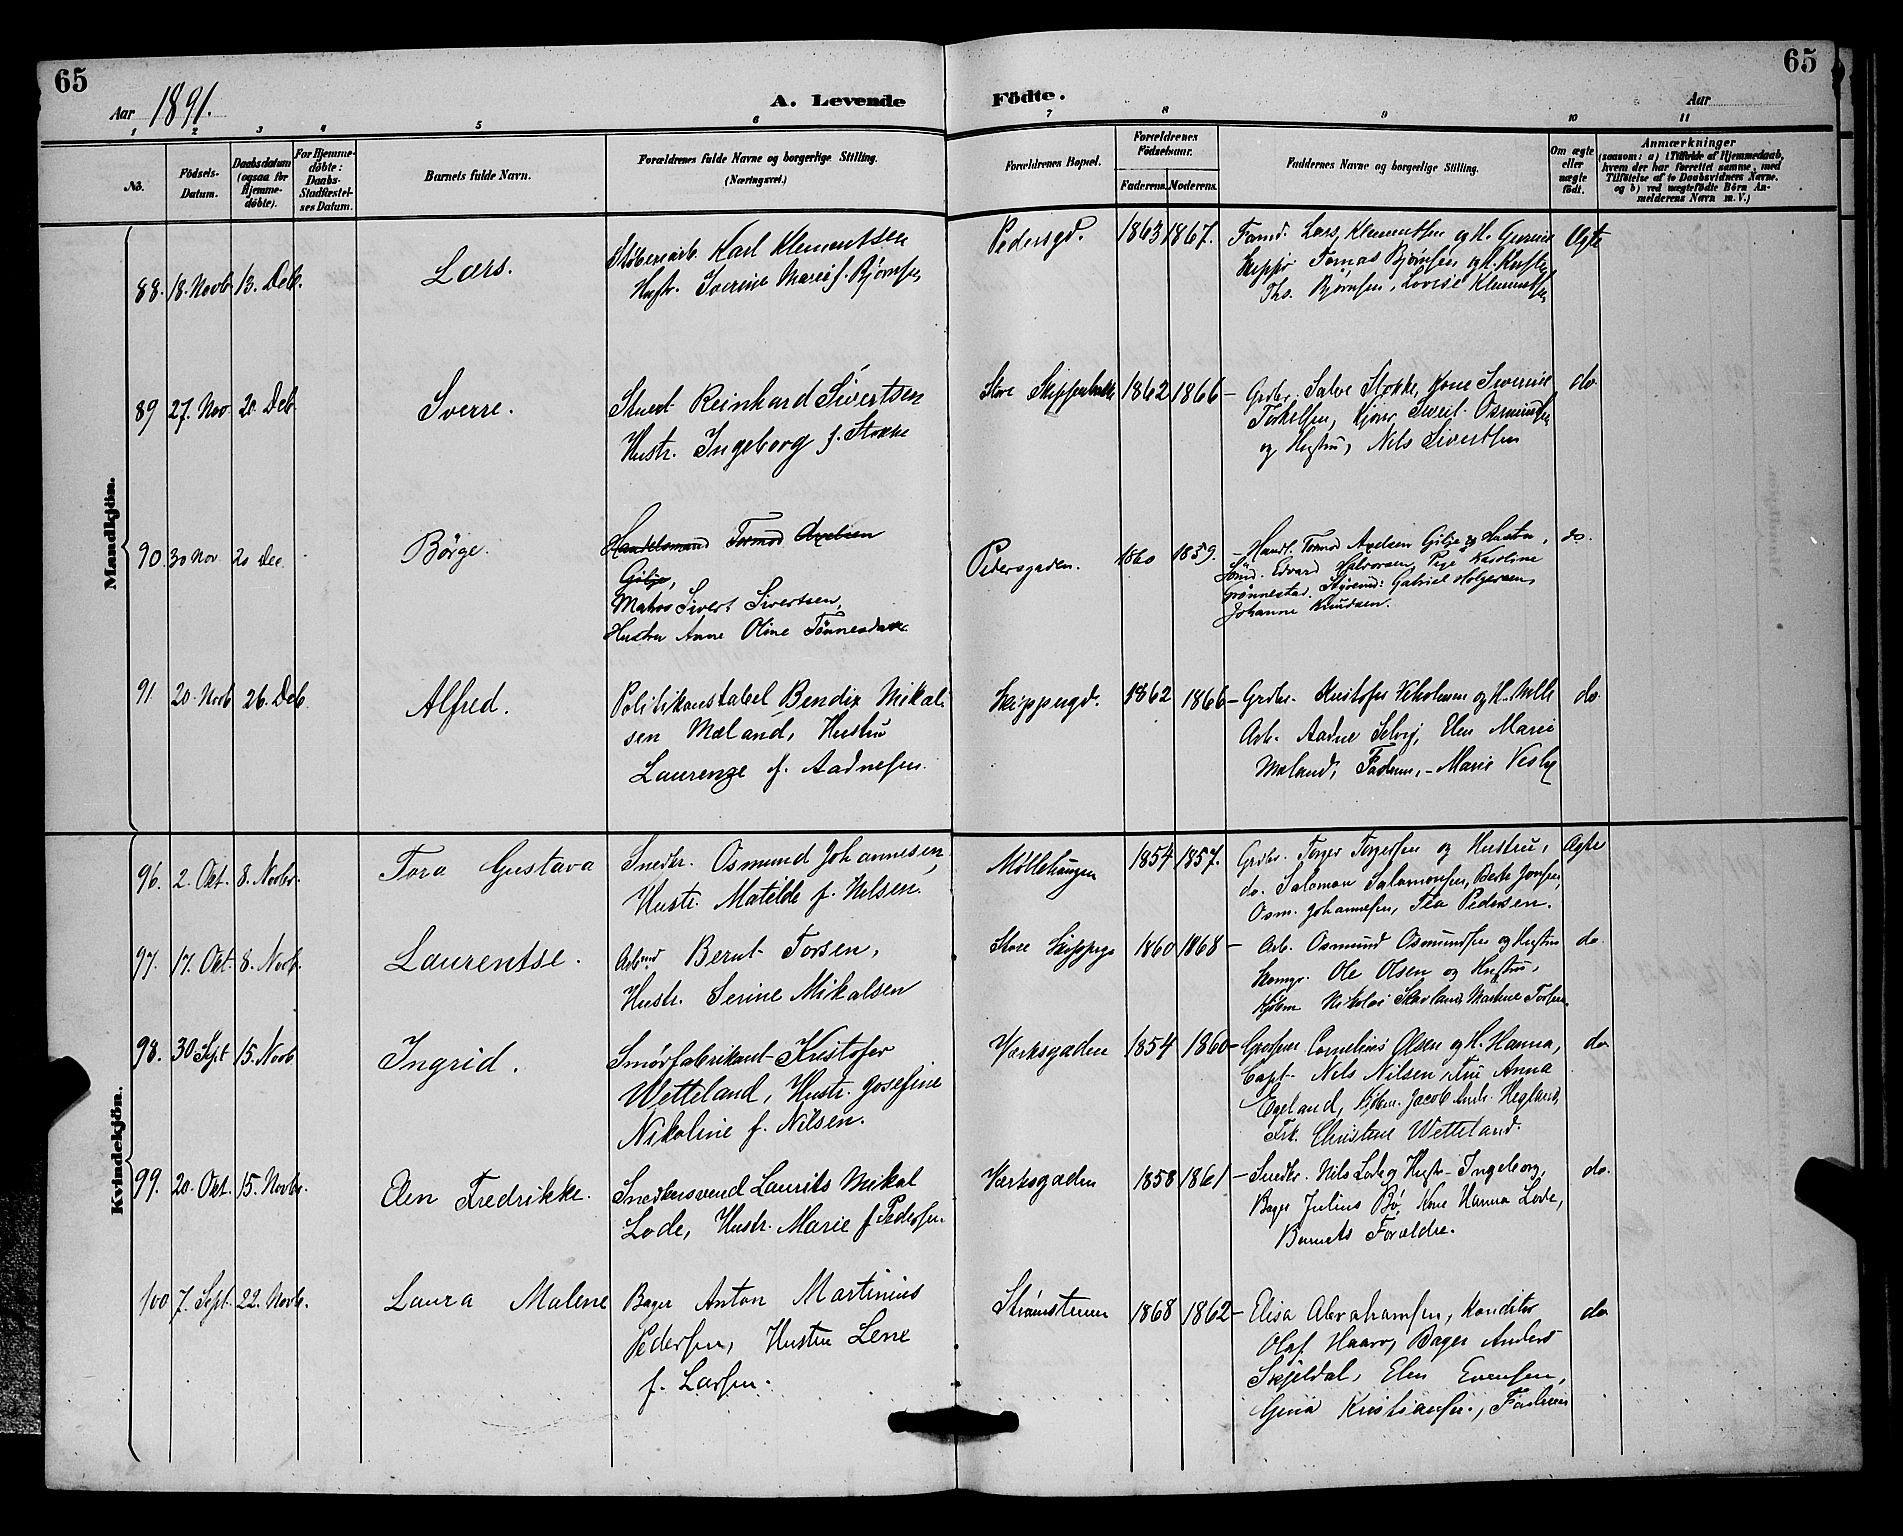 65
65
Aar 1891.
A. Levende
Födte.
Aar
1 2 3 4 5 6 7 8 9 10 11
No.
Födsels-Datum.
Daabsdatum (ogsaa for Hjemme-döbte).
For Hjemme-döbte: Daabs-Stadfæstel-ses Datum.
Barnets fulde Navn.
Forældrenes fulde Navne og borgerlige Stilling.
(Næringsvei.)
Forældrenes Bopæl.
Forældrenes Födselsaar.
Faderens. Moderens.
Faddernes Navne og borgerlige Stilling.
Om ægte eller uægte födt.
Anmærkninger
(saasom: a) i Tilfælde af Hjemmedaab, hvem der har forrettet samme, med Tilföielse af to Daabsvidners Navne. og b) ved uægtefödte Börn An-melderens Navn m. V.)
Mandkjön.
88. 18. Novb. 13. Deb.
Lars.
Karl Klementsen
Hustr. Severine Marie f. Bjørnsen
Pedersgd.
1863 1867.
Lars Klementsen og H. Gurine
Tomas Bjørnsen og H.
Ths. Bjørnsen, Lovise Klementsen
Ægte
89 27. Nov 20. Deb
Sverre.
Stuert Reinhard Sivertsen
Hustr. Ingeborg f. Stokke
Store Skipperbakke
1862 1866
Grdbr. Salve Stokke, Kone Severine
Torkelsen, Osmundsen
og Hustru, Nils Sivertsen
do
90. 30 Nov 20 Dec
Börge.
Handelsmand Tormod Axelsen
Gilje,
Matros Sivert Sivertsen,
Hustru Anne Oline Tönnesdatter
Pedersgaden.
1860 1859.
Handl. Tormod Axelsen Gilje og Hustru,
Sömd. Edvard Halvorsen, Pige Karoline
Grönnestad. Styrmd: Gabriel Holgersen,
Johanne Knudsen.
do.
91 20. Novb 26. Deb
Alfred.
Politikonstabel Bendix Mikal
sen Mæland, Hustru
Laurenze f. Aadnesen.
Skippergd.
1862 1866
Grdbr. Kristofer og H.
Arb. Aadne Selvig, Elen Marie
Mæland, Faderen, Marie Vesby
do
Kvindekjön.
96. 2. Okt. 8. Novbr.
Tora Gustava
Snedkr. Osmund Johannesen,
Hustr. Matilde f. Nilsen.
Møllehaugen
1854 1857.
Grdbr. Torger Torgersen og Hustru,
do. Salomon Salomonsen, Berte Jonsen,
Osm. Johannesen, Tea Pedersen.
Ægte
97. 17. Okt. 8. Novb.
Laurentse.
Arbmd Bernt Torsen,
Hustr. Serine Mikalsen
Store Skipperg
1860 1868
Arb. Osmund Osmundsen og Hustru
Ole Olsen og Hustru,
Nikolai Skarland, Martine Torsen
do.
98. 30 Sept 15. Novb
Ingrid.
Smørfabrikant Kristofer
Wetteland, Hustr. Josefine
Nikoline f. Nilsen.
Værksgaden
1854 1860
Grosserer Cornelius Olsen og H. Hanna,
Capt. Nils Nilsen, Fru Anna
Egeland, Kjøbm. Jacob Andr. Hegland,
Frk. Christine Wetteland.
do
99. 20. Okt. 15. Novbr.
Elen Fredrikke.
Snedkersvend Laurits Mikal
Lode, Hustr. Marie f. Pedersen
Værksgaden
1858 1861
Snedkr. Nils Lode og Hustr. Ingeborg,
Bager Julius Bø, Kone Hanna Lode,
Barnets Forældre.
do.
100 7. Sept. 22. Novb.
Laura Malene
Bager Anton Martinius
Pedersen, Hustru Lene
f. Larsen.
Strømstenen
1868 1862
Elisa Abrahamsen, Konditor
Olaf Haaro, Bager Anders
Skjeldal, Elen Evensen,
Gina Kristiansen, Faderen
do